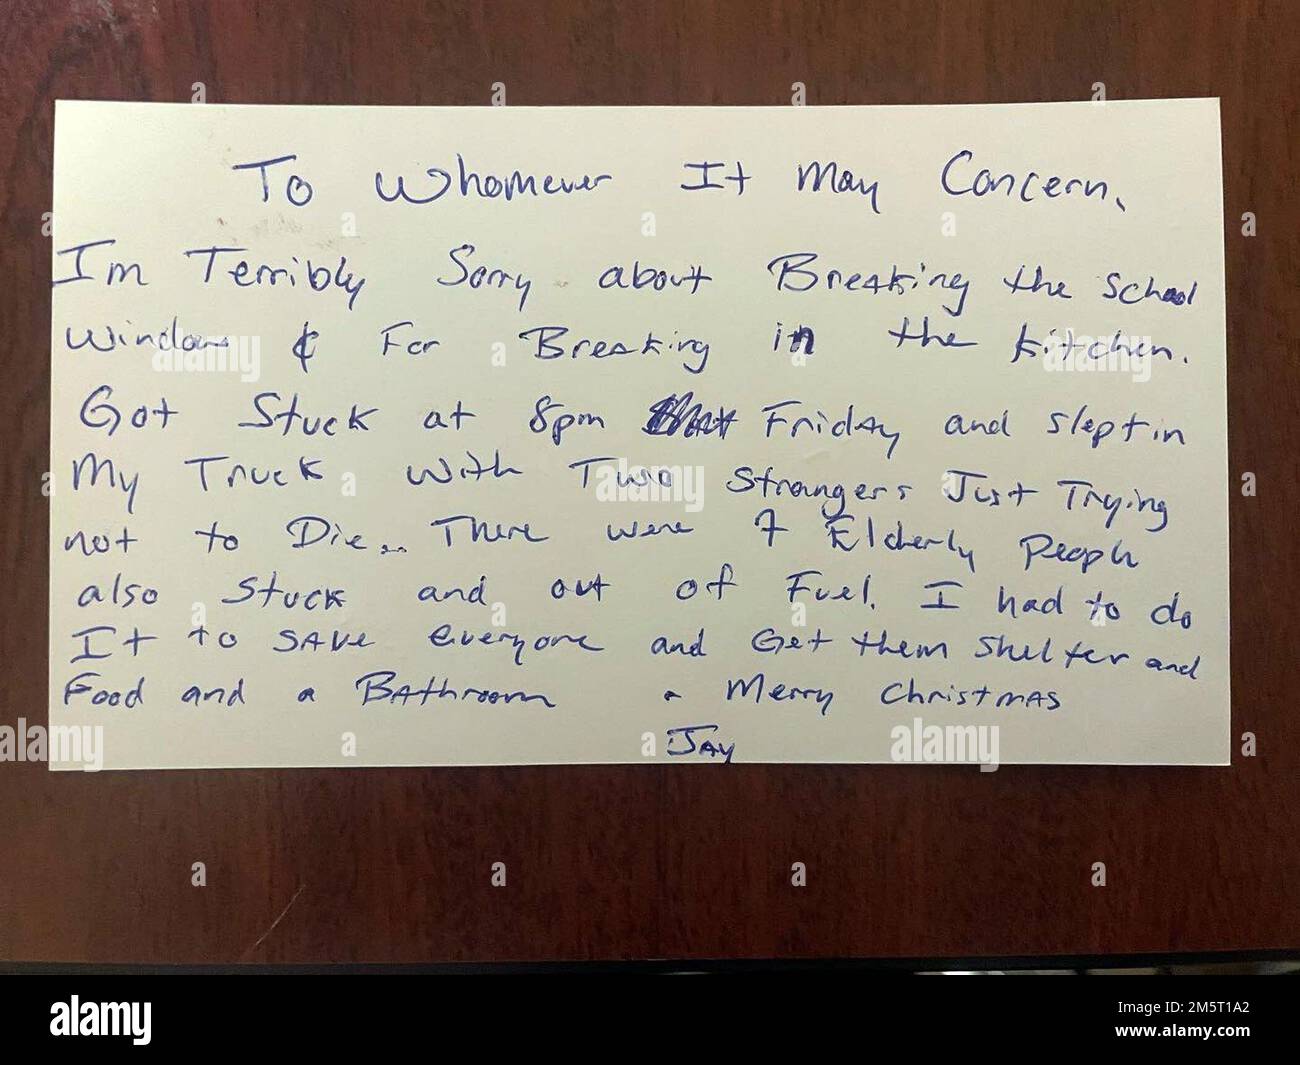 To Whomever It May Concern,
I'm Terribly Sorry about Breaking the School
window & For Breaking in the kitchen.
Got Stuck at 8pm Friday and slept in
My Truck with Two Strangers Just Trying
not to Die... There were 7 Elderly People
also Stuck and out of Fuel. I had to do
It to SAVE everyone and Get them shelter and
Food and a BAthroom - Merry ChristmAs
JAy
alamy
Image ID: 2M5T1A2
www.alamy.com